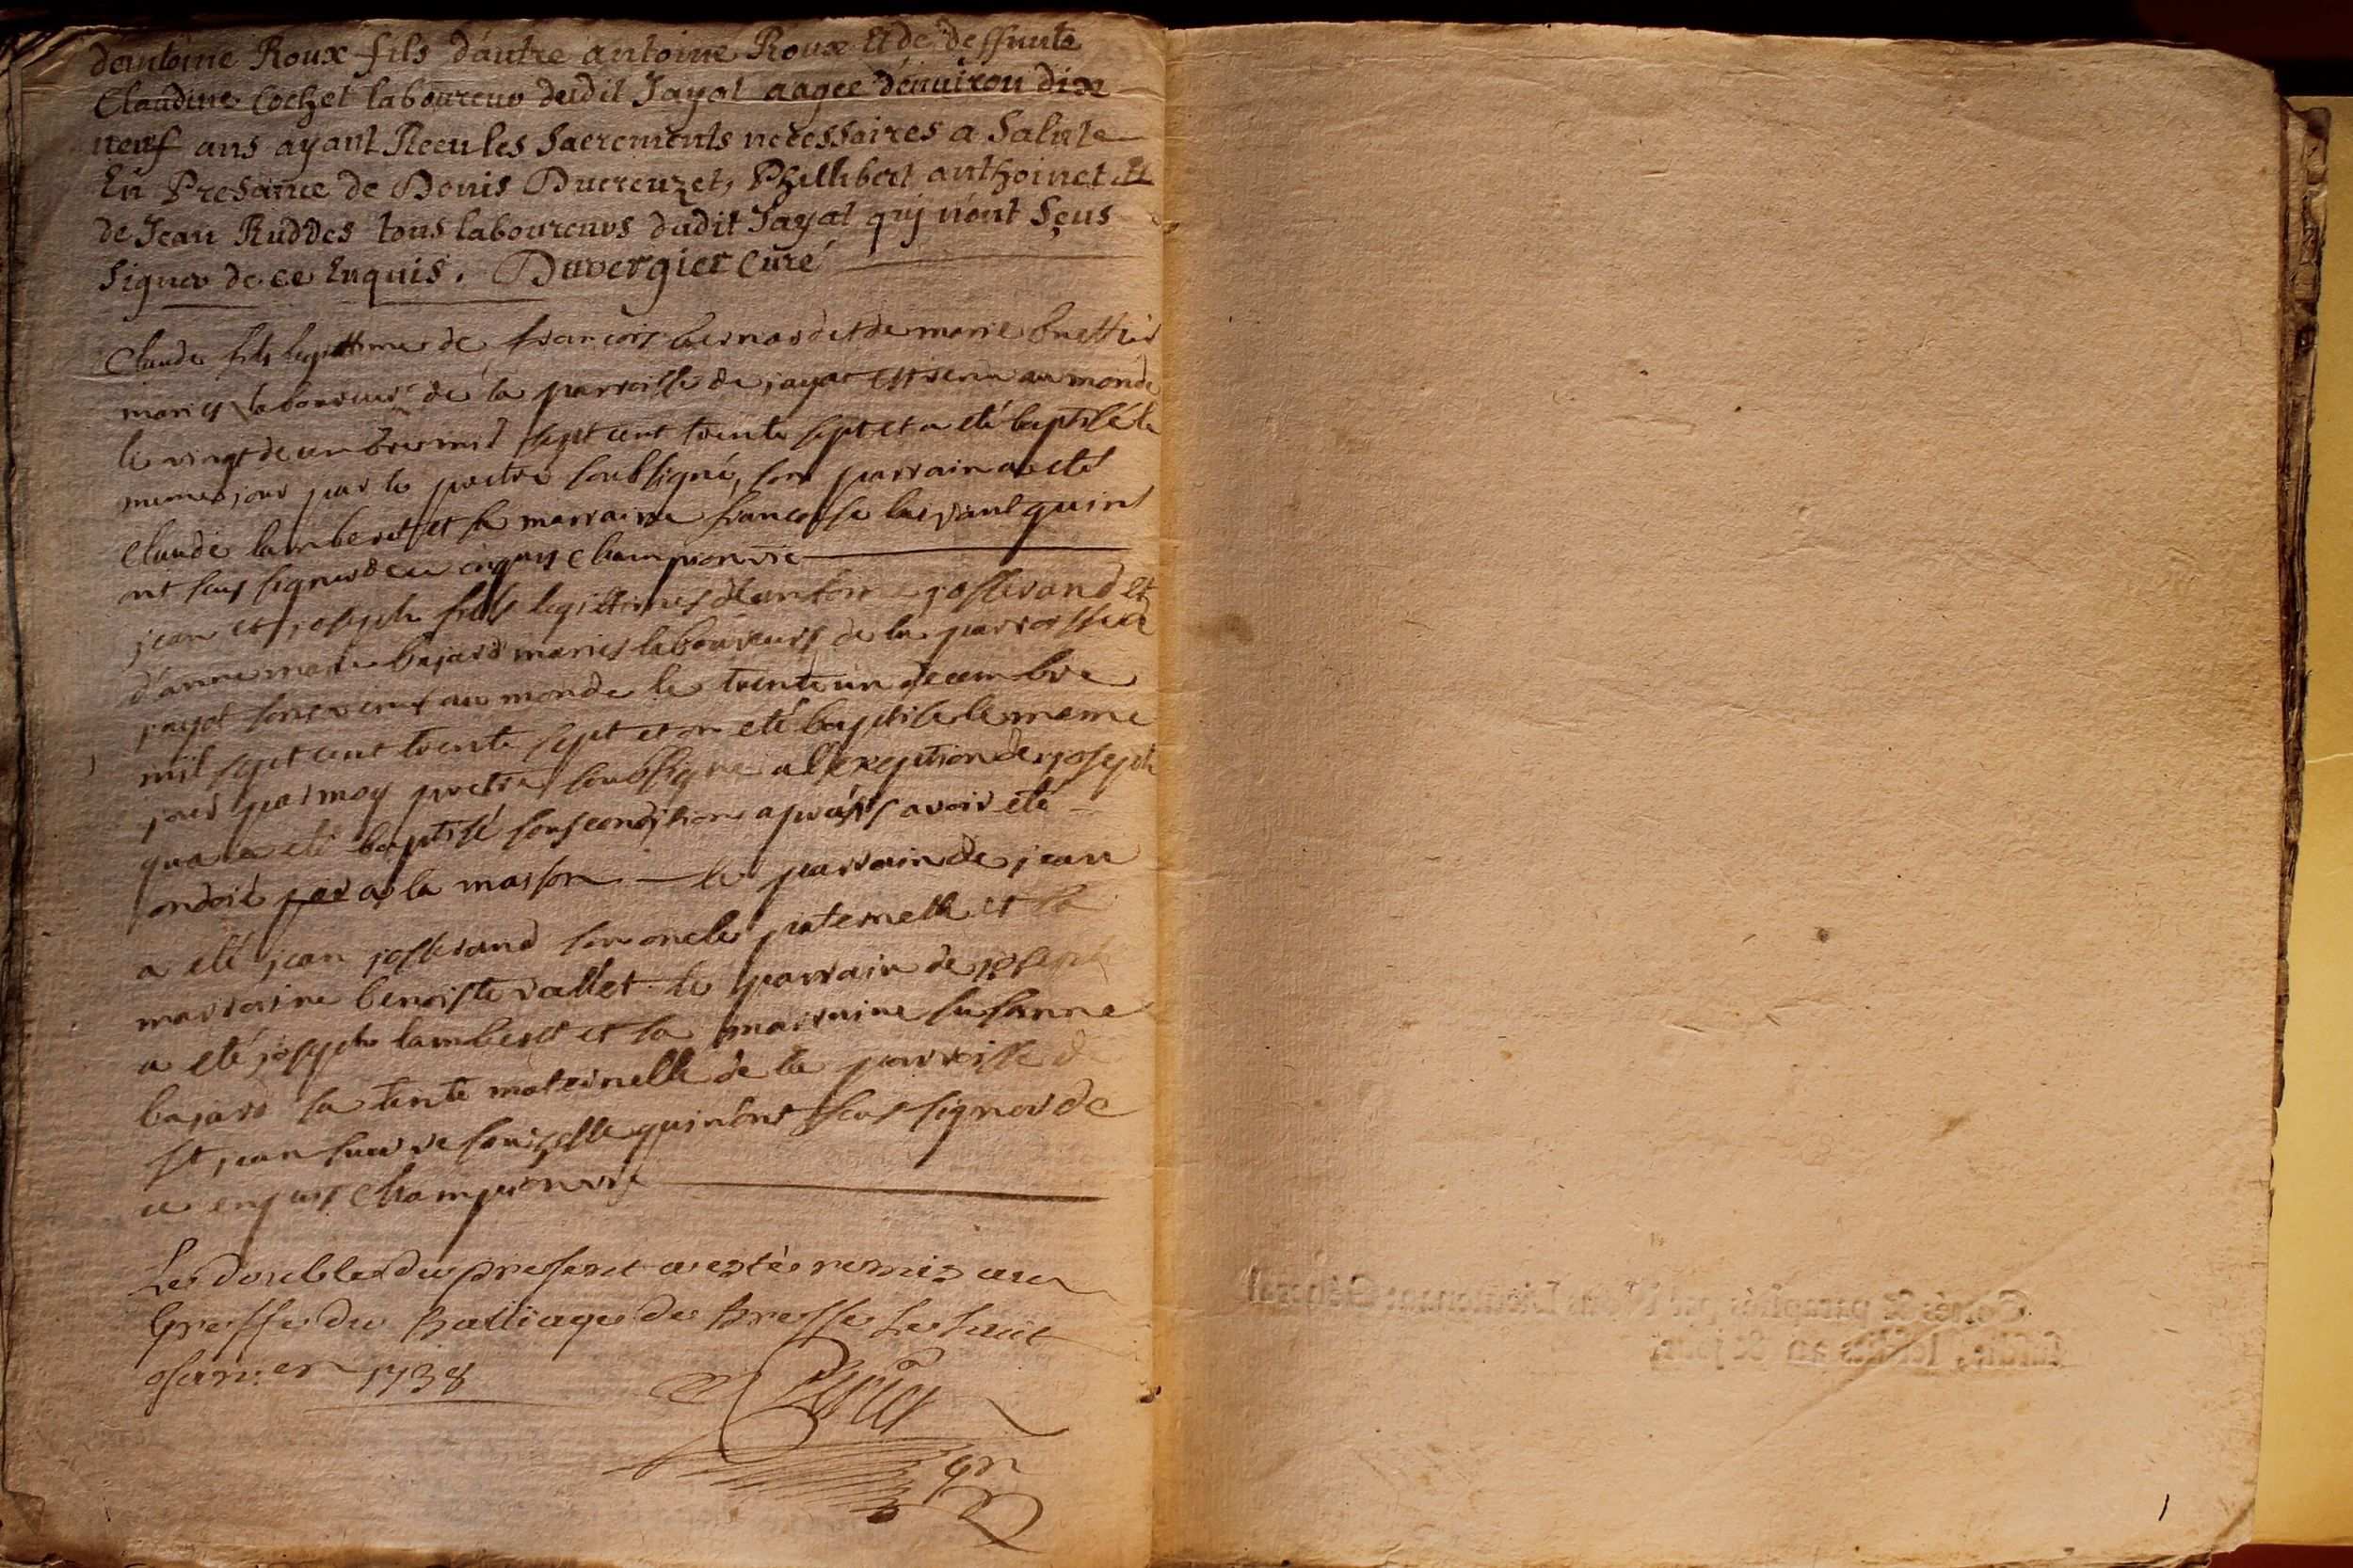 d'antoine Roux fils d'autre antoine Roux Et de deffunte
Claudine Cochet laboureur dudit Jayat aagee d'environ dix
neuf ans ayant Receu les Sacrements necessaires a Salute
En Presance de Denis Ducreuzet, Philibert anthoinet Et
de Jean Ruddes tous laboureurs dudit Jayat quj n'ont Sçus
Signer de ce Enquis. Duvergier Curé
Claude fils legittime de françois bernard et de marie
mariés laboureurs de la parroisse de jayat est venu au monde
le vingt decembre mil sept cent trente sept et a eté baptisé le
meme jour par le pretre soubsigné, son parrain a eté
Claude lamberet et sa marraine francoise qui n'
ont seus signer de ce enquis Champion vic
jean et joseph fils legittimes d'antoine josserand et
d'anne marie bajard mariés laboureurs de la parroisse de
jayat sont venus au monde le trente un decembre
mil sept cent trente sept et on eté baptisé le meme
jour par moy pretre soubsigné a l'exeption de joseph
qua eté baptisé sous condition aprés avoir eté
ondoié par a la maison le parrain de jean
a eté jean josserand son oncle paternelle et la
marraine benoiste vallet le parrain de joseph
a eté joseph lamberet et la marraine susanne
bajard sa tente maternelle de la parroisse de
st jean sur qui n'ont seus signer de
ce enquis Champion vic
Le double du present a esté remis au
Greffe du Balliage de Bresse Le huit
Janvier 1738